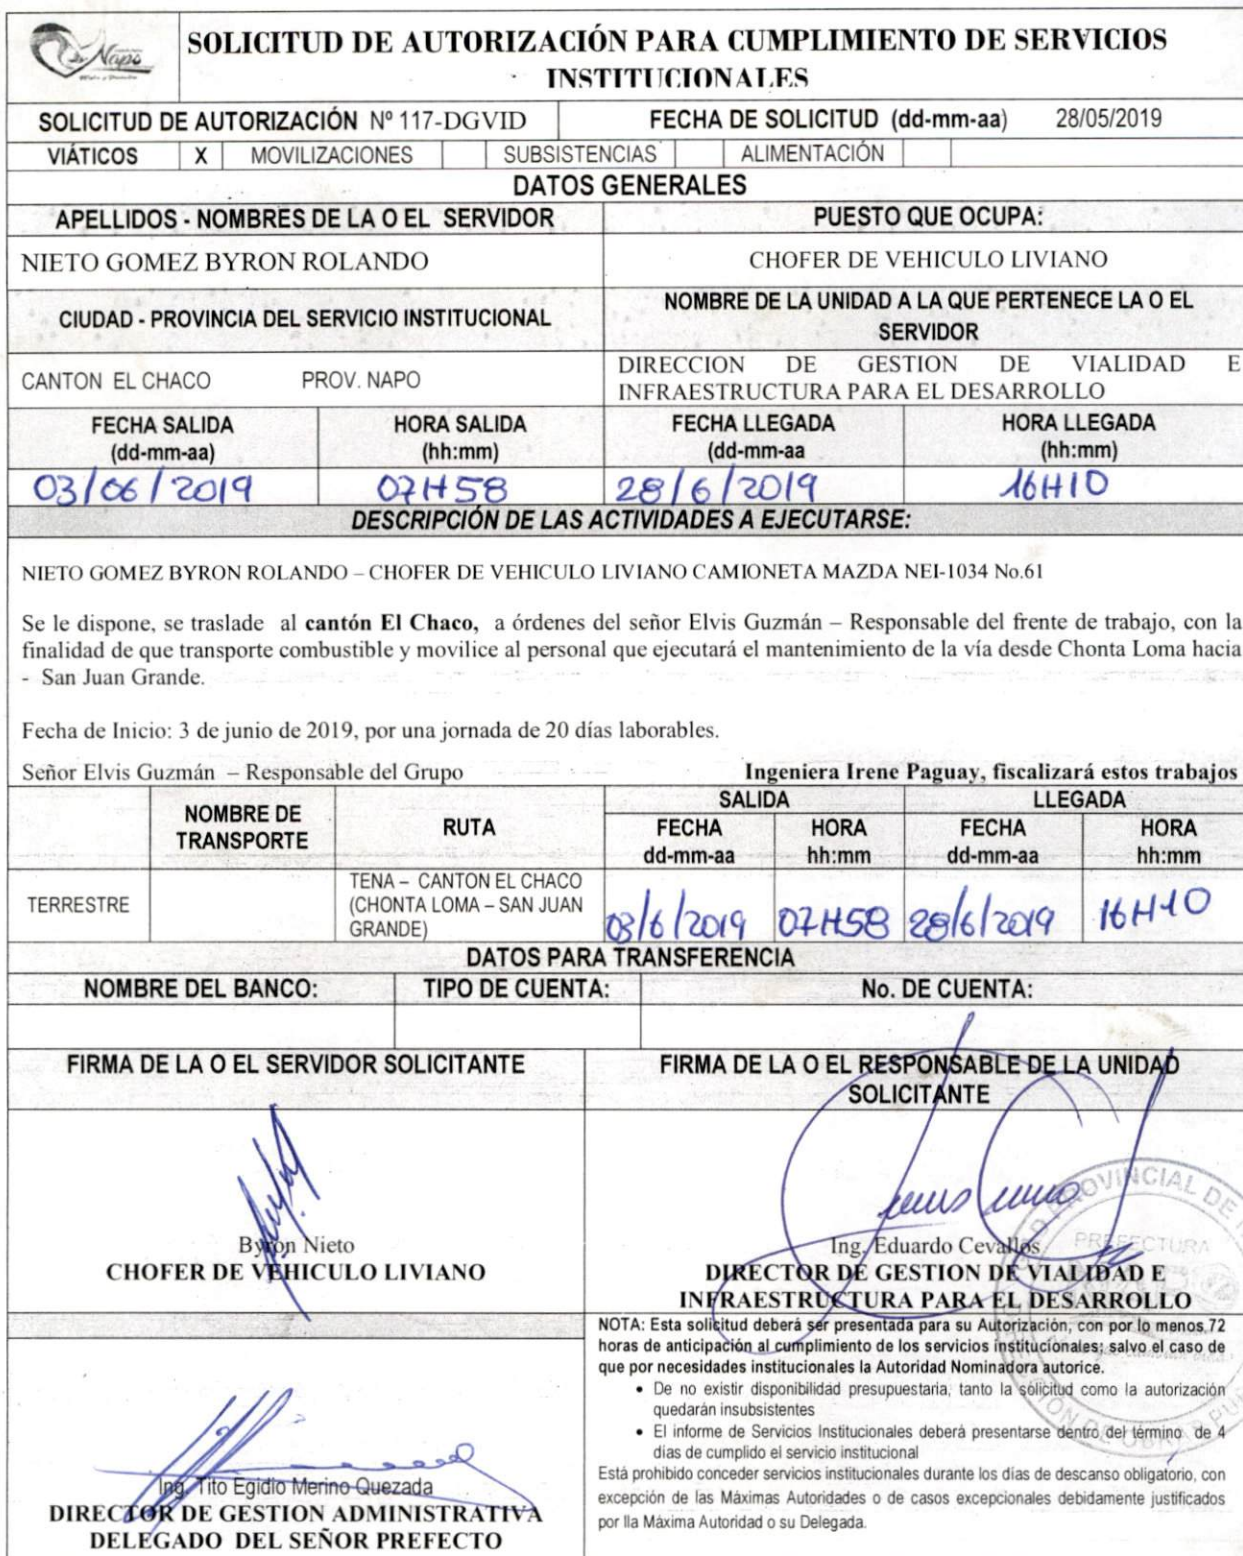 Napo
SOLICITUD DE AUTORIZACIÓN PARA CUMPLIMIENTO DE SERVICIOS
INSTITUCIONALES
SOLICITUD DE AUTORIZACIÓN Nº 117-DGVID FECHA DE SOLICITUD (dd-mm-aa) 28/05/2019
VIÁTICOS X MOVILIZACIONES SUBSISTENCIAS ALIMENTACIÓN
DATOS GENERALES
APELLIDOS - NOMBRES DE LA O EL SERVIDOR PUESTO QUE OCUPA:
NIETO GOMEZ BYRON ROLANDO CHOFER DE VEHICULO LIVIANO
CIUDAD - PROVINCIA DEL SERVICIO INSTITUCIONAL NOMBRE DE LA UNIDAD A LA QUE PERTENECE LA O EL
SERVIDOR
CANTON EL CHACO PROV. NAPO DIRECCION DE GESTION DE VIALIDAD E
INFRAESTRUCTURA PARA EL DESARROLLO
FECHA SALIDA HORA SALIDA FECHA LLEGADA HORA LLEGADA
(dd-mm-aa) (hh:mm) (dd-mm-aa (hh:mm)
03/06/2019 07H58 28/6/2019 16H10
DESCRIPCIÓN DE LAS ACTIVIDADES A EJECUTARSE:
NIETO GOMEZ BYRON ROLANDO – CHOFER DE VEHICULO LIVIANO CAMIONETA MAZDA NEI-1034 No.61
Se le dispone, se traslade al cantón El Chaco, a órdenes del señor Elvis Guzmán – Responsable del frente de trabajo, con la
finalidad de que transporte combustible y movilice al personal que ejecutará el mantenimiento de la vía desde Chonta Loma hacia
- San Juan Grande.
Fecha de Inicio: 3 de junio de 2019, por una jornada de 20 días laborables.
Señor Elvis Guzmán – Responsable del Grupo Ingeniera Irene Paguay, fiscalizará estos trabajos
SALIDA LLEGADA
NOMBRE DE TRANSPORTE RUTA FECHA HORA FECHA HORA
dd-mm-aa hh:mm dd-mm-aa hh:mm
TERRESTRE TENA – CANTON EL CHACO
(CHONTA LOMA – SAN JUAN
GRANDE)
03/6/2019 07H58 28/6/2019 16H10
DATOS PARA TRANSFERENCIA
NOMBRE DEL BANCO: TIPO DE CUENTA: No. DE CUENTA:
FIRMA DE LA O EL SERVIDOR SOLICITANTE FIRMA DE LA O EL RESPONSABLE DE LA UNIDAD
SOLICITANTE
Byron Nieto
CHOFER DE VEHICULO LIVIANO
Ing. Eduardo Cevallos
DIRECTOR DE GESTION DE VIALIDAD E
INFRAESTRUCTURA PARA EL DESARROLLO
PROVINCIAL DE
PREFECTURA
DE OBRAS
NOTA: Esta solicitud deberá ser presentada para su Autorización, con por lo menos 72
horas de anticipación al cumplimiento de los servicios institucionales; salvo el caso de
que por necesidades institucionales la Autoridad Nominadora autorice.
• De no existir disponibilidad presupuestaria, tanto la solicitud como la autorización
quedarán insubsistentes
• El informe de Servicios Institucionales deberá presentarse dentro del término de 4
días de cumplido el servicio institucional
Está prohibido conceder servicios institucionales durante los días de descanso obligatorio, con
excepción de las Máximas Autoridades o de casos excepcionales debidamente justificados
por lla Máxima Autoridad o su Delegada.
Ing. Tito Egidio Merino Quezada
DIRECTOR DE GESTION ADMINISTRATIVA
DELEGADO DEL SEÑOR PREFECTO